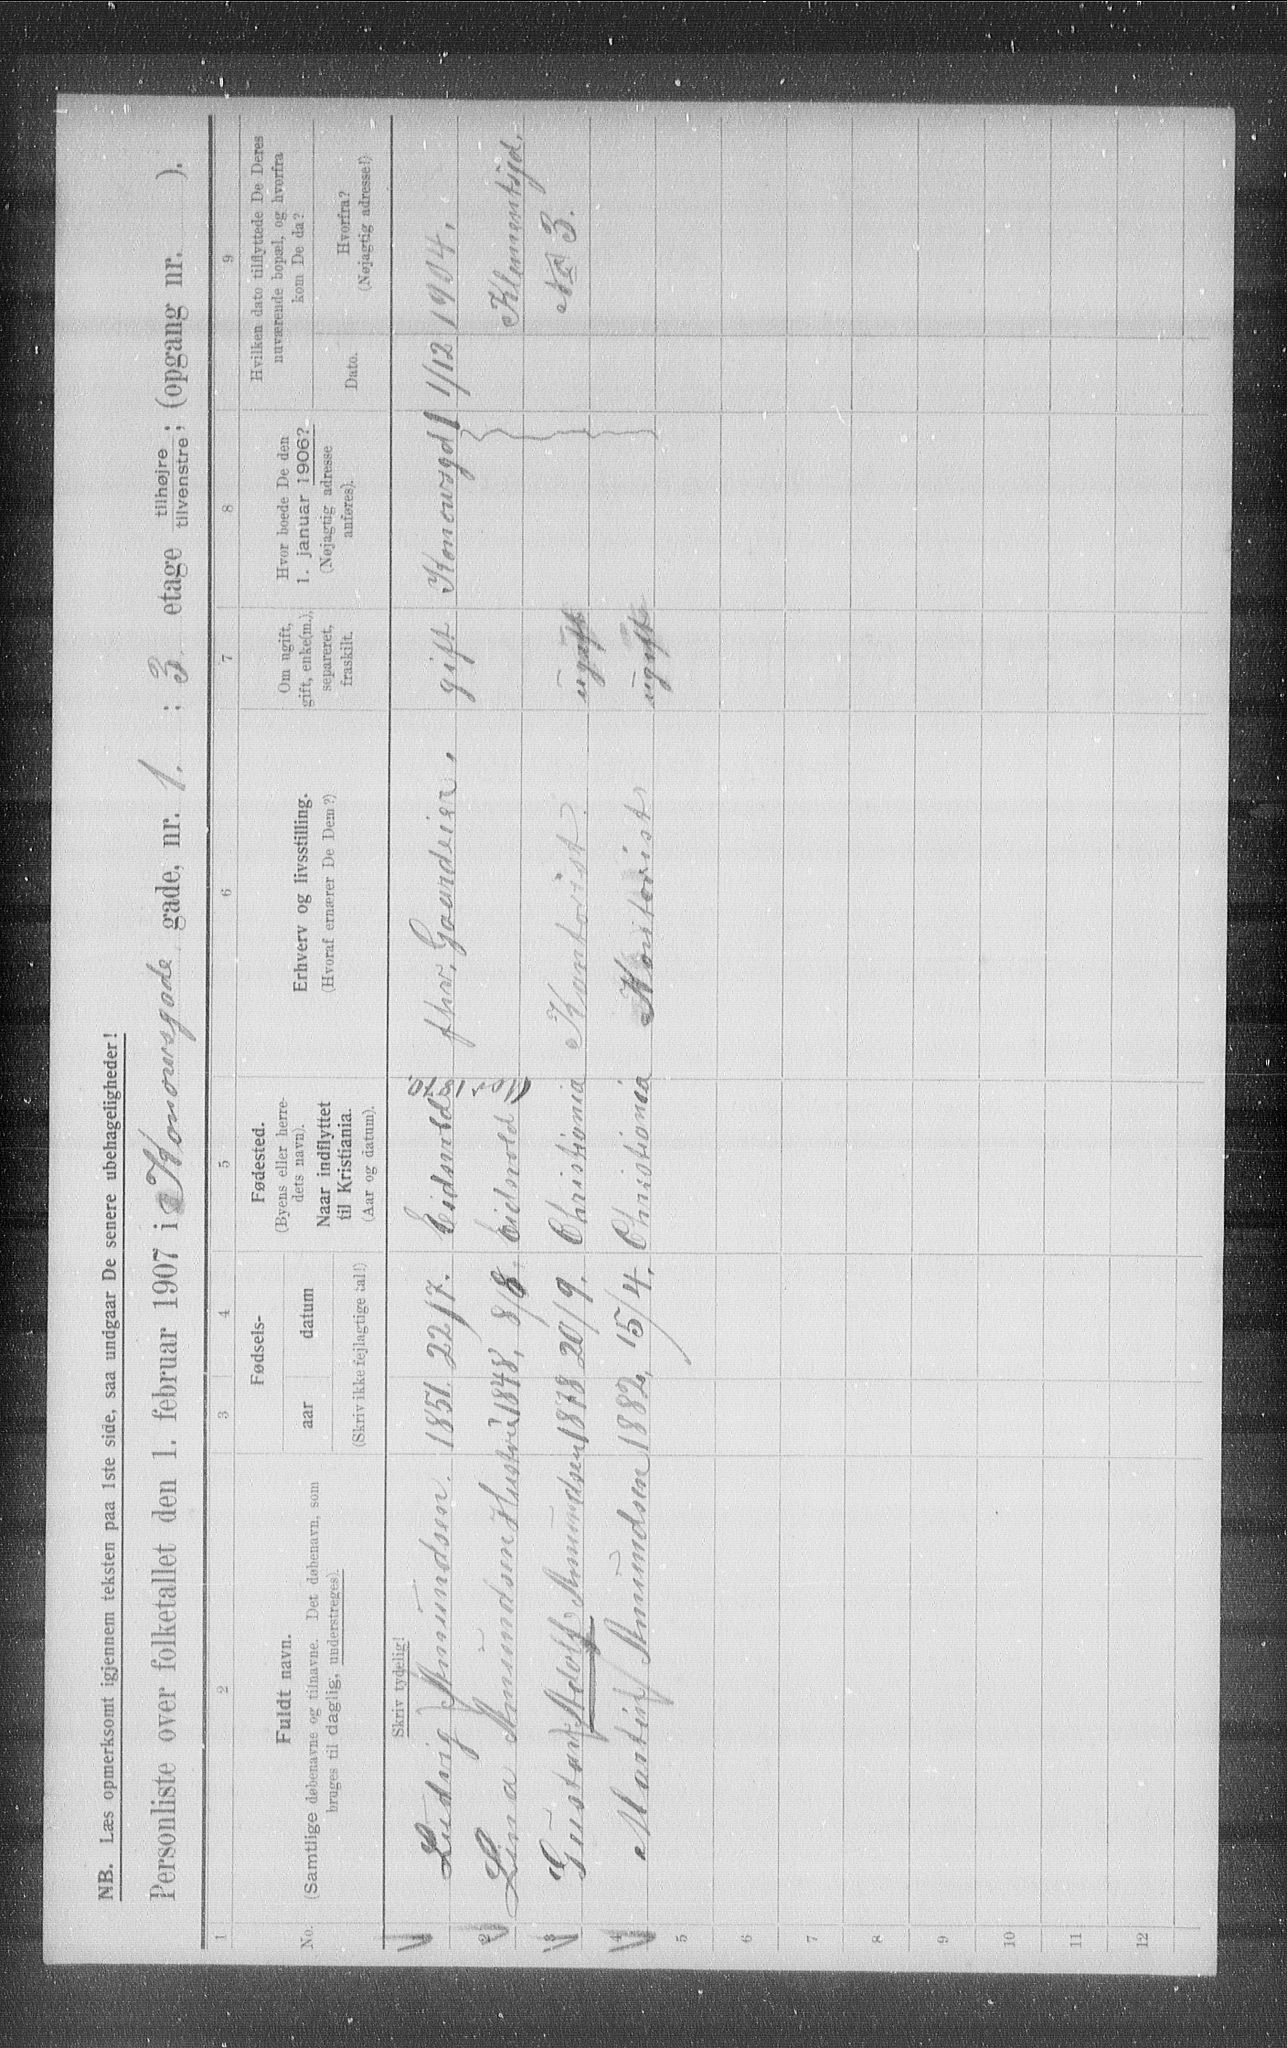 NB. Læs opmerksomt igjennem teksten paa 1ste side, saa undgaar De senere ubehageligheder!
Personliste over folketallet den 1. februar 1907 i Konowsgade gade, nr. 1. ; 3 etage tilhøjre tilvenstre; (opgang nr. ).
1 2 3 4 5 6 7 8 9
No.
Fuldt navn.
(Samtlige døbenavne og tilnavne. Det døbenavn, som
bruges til daglig, understreges).
Fødsels-
aar datum
(Skriv ikke fejlagtige tal!)
Fødested.
(Byens eller herre-
dets navn).
Naar indflyttet
til Kristiania.
(Aar og datum).
Erhverv og livsstilling.
(Hvoraf ernærer De Dem?)
Om ugift,
gift, enke(m.),
separeret,
fraskilt.
Hvor boede De den
1. januar 1906?
(Nøjagtig adresse
anføres).
Hvilken dato tilflyttede De Deres
nuværende bopæl, og hvorfra
kom De da?
Dato.
Hvorfra?
(Nøjagtig adresse!)
Skriv tydelig!
1 Ludvig Amundsen. 1851. 22/7. Eidsvold 1870. fhv. Gaardeier. gift Konowsgd 1 1/12 1904.
2 Lina Amundsen Hustru 1848, 8/8. Eidsvold Klementsgd.
3 Gustav Adolf Amundsen 1878 20/9. Christiania Kontorist. ugift No 3.
4 Martin Amundsen 1882, 15/4. Christiania Kontorist ugift
5
6
7
8
9
10
11
12